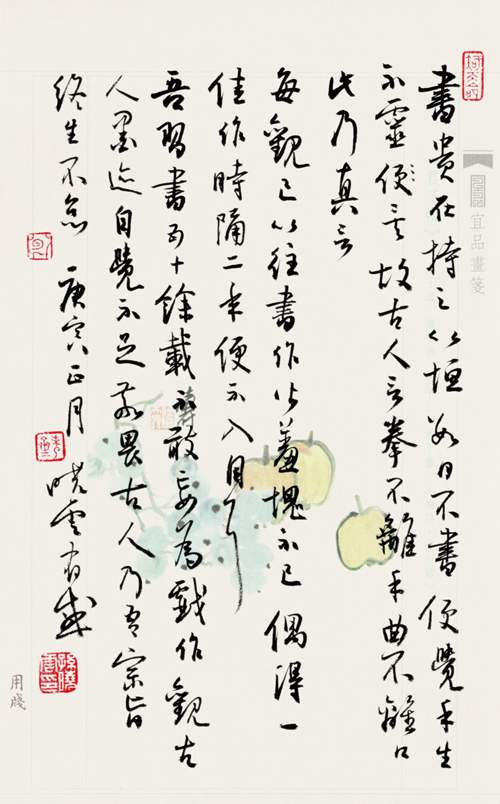 書貴在持之以恒数日不書便覺手生
不靈便言故古人言拳不離手曲不離口
此乃真言
每觀己以往書作皆羞愧不已偶得一
佳作時隔二年便不入目耳
吾習書五十餘載不敢妄為戲作觀古
人墨迹自覺不足敬畏古人乃吾宗旨
終生不怠 庚寅正月 曉雲有感
宜品畫箋
用箋